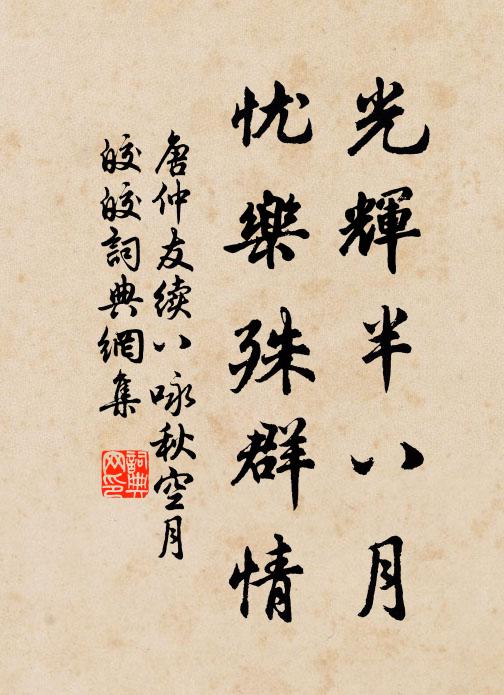 光輝半八月
忧樂殊群情
唐仲友续八咏秋空月
皎皎詞典網集
詞典网印